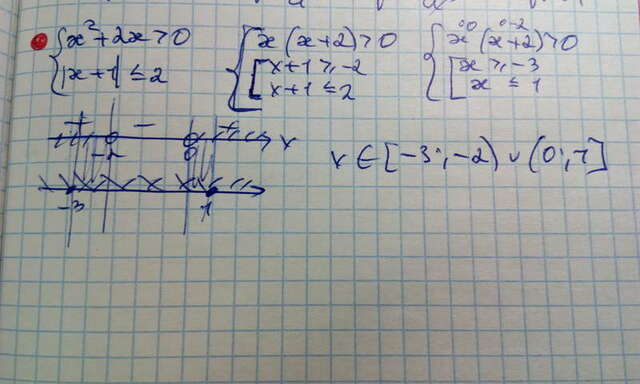 { x² + 2x > 0
|x + 1| ≤ 2
{ x (x + 2) > 0
[ x + 1 ≥ -2
x + 1 ≤ 2
0 0 -2
{ x (x + 2) > 0
[ x ≥ -3
x ≤ 1
+ - + x
-2 0
-3 1
x ∈ [-3; -2) ∪ (0; 1]